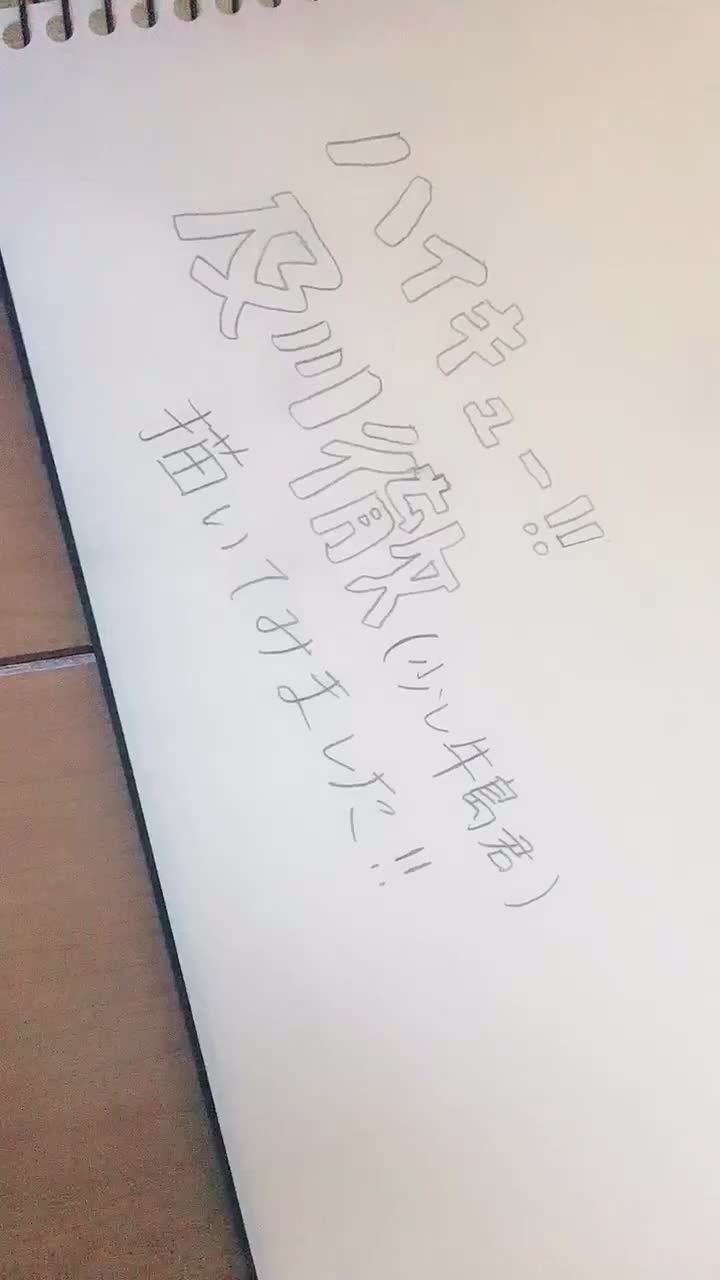 ハイキュー!!
及川徹(少し牛島君)
描いてみました!!